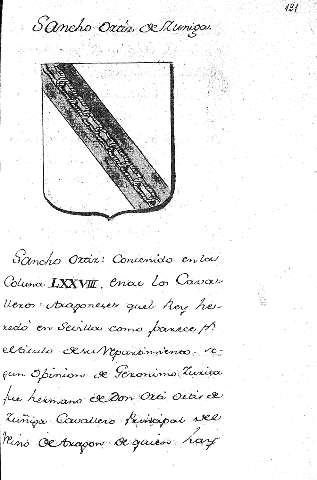 131
Sancho Ortiz de Zuñiga.
Sancho Ortiz: Contenido en la
Coluna LXXVIII, entre los Cava-
lleros Aragoneses quel Rey he-
redó en Sevilla como parece pr
el titulo de su Repartimiento. Se-
gun Opinion de Geronimo Zurita
fue hermano de Don Orti Ortiz de
Zuñiga Cavallero Principal del
Reino de Aragon de quien hay